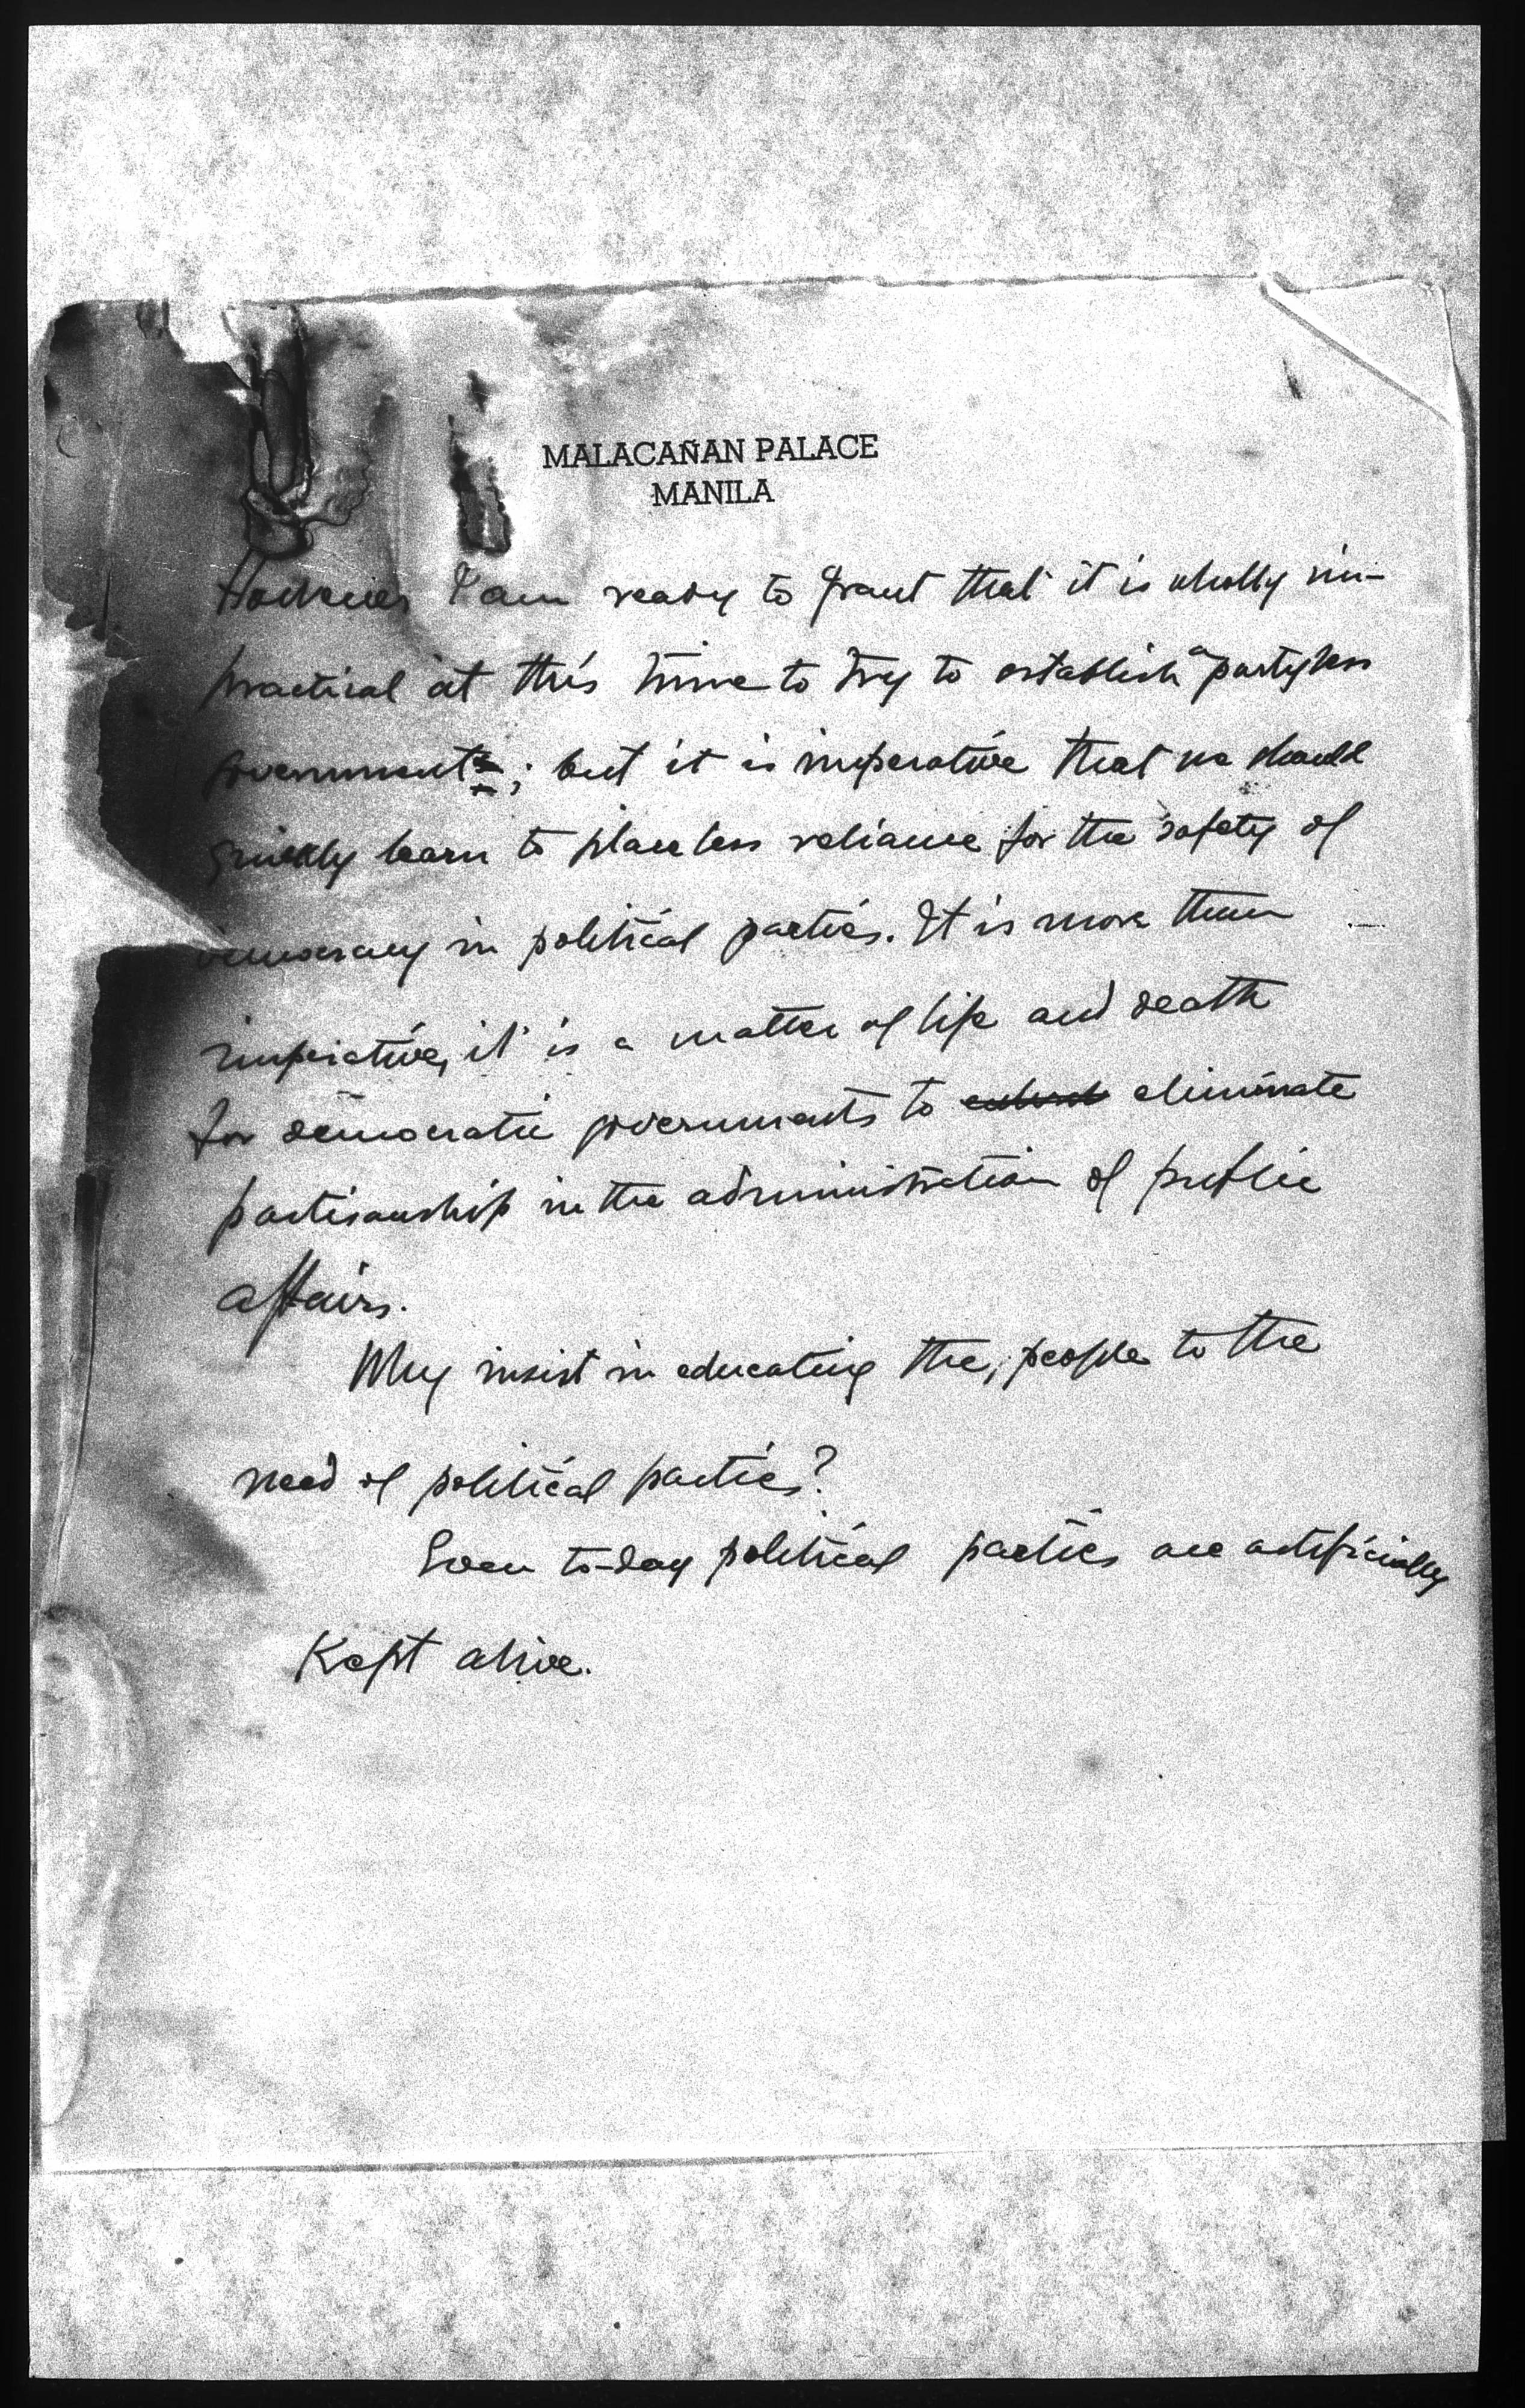 MALACAÑAN PALACE
MANILA
However I am ready to grant that it is wholly im-
practical at this time to try to establish a partyless
government; but it is imperative that we should
quickly learn to place less reliance for the safety of
democracy in political parties. It is more than
imperative, it is a matter of life and death
for democratic governments to eliminate
partisanship in the administration of public
affairs.
Why insist in educating the people to the
need of political parties?
Even to-day political parties are artificially
Kept alive.